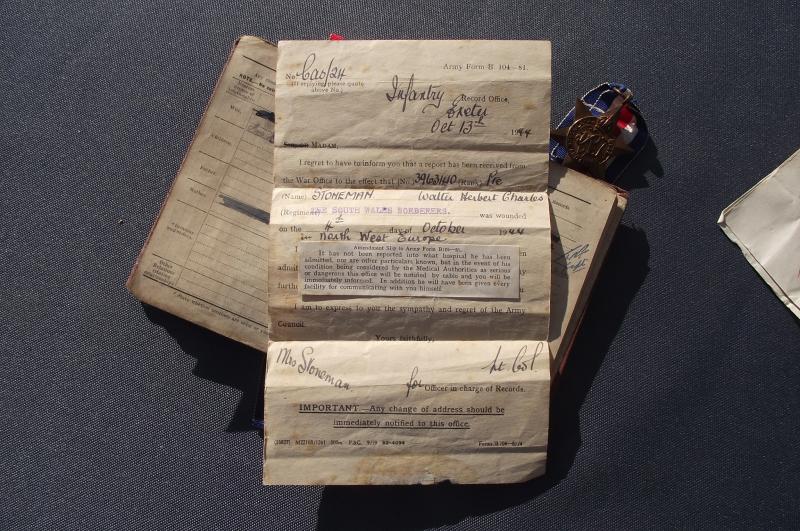 Army Form B 104—81.
No. Cas/24
(If replying, please quote
above No.)
Infantry Record Office,
Exeter
Oct 13th 1944
Sir or Madam,
I regret to have to inform you that a report has been received from
the War Office to the effect that (No.) 3963140 (Rank) Pte
(Name) STONEMAN Walter Herbert Charles
(Regiment) THE SOUTH WALES BORDERERS. was wounded
on the 4th day of October 1944
in North West Europe
Amendment Slip to Army Form B104—81.
It has not been reported into what hospital he has been
admitted, nor are other particulars known, but in the event of his
condition being considered by the Medical Authorities as serious
or dangerous this office will be notified by cable and you will be
immediately informed. In addition he will have been given every
facility for communicating with you himself.
I am to express to you the sympathy and regret of the Army
Council.
Yours faithfully,
Mrs Stoneman.
Lt Col
for Officer in charge of Records.
IMPORTANT.—Any change of address should be
immediately notified to this office.
NOTE.
Wife
Children
Father
Mother
Other
Relations